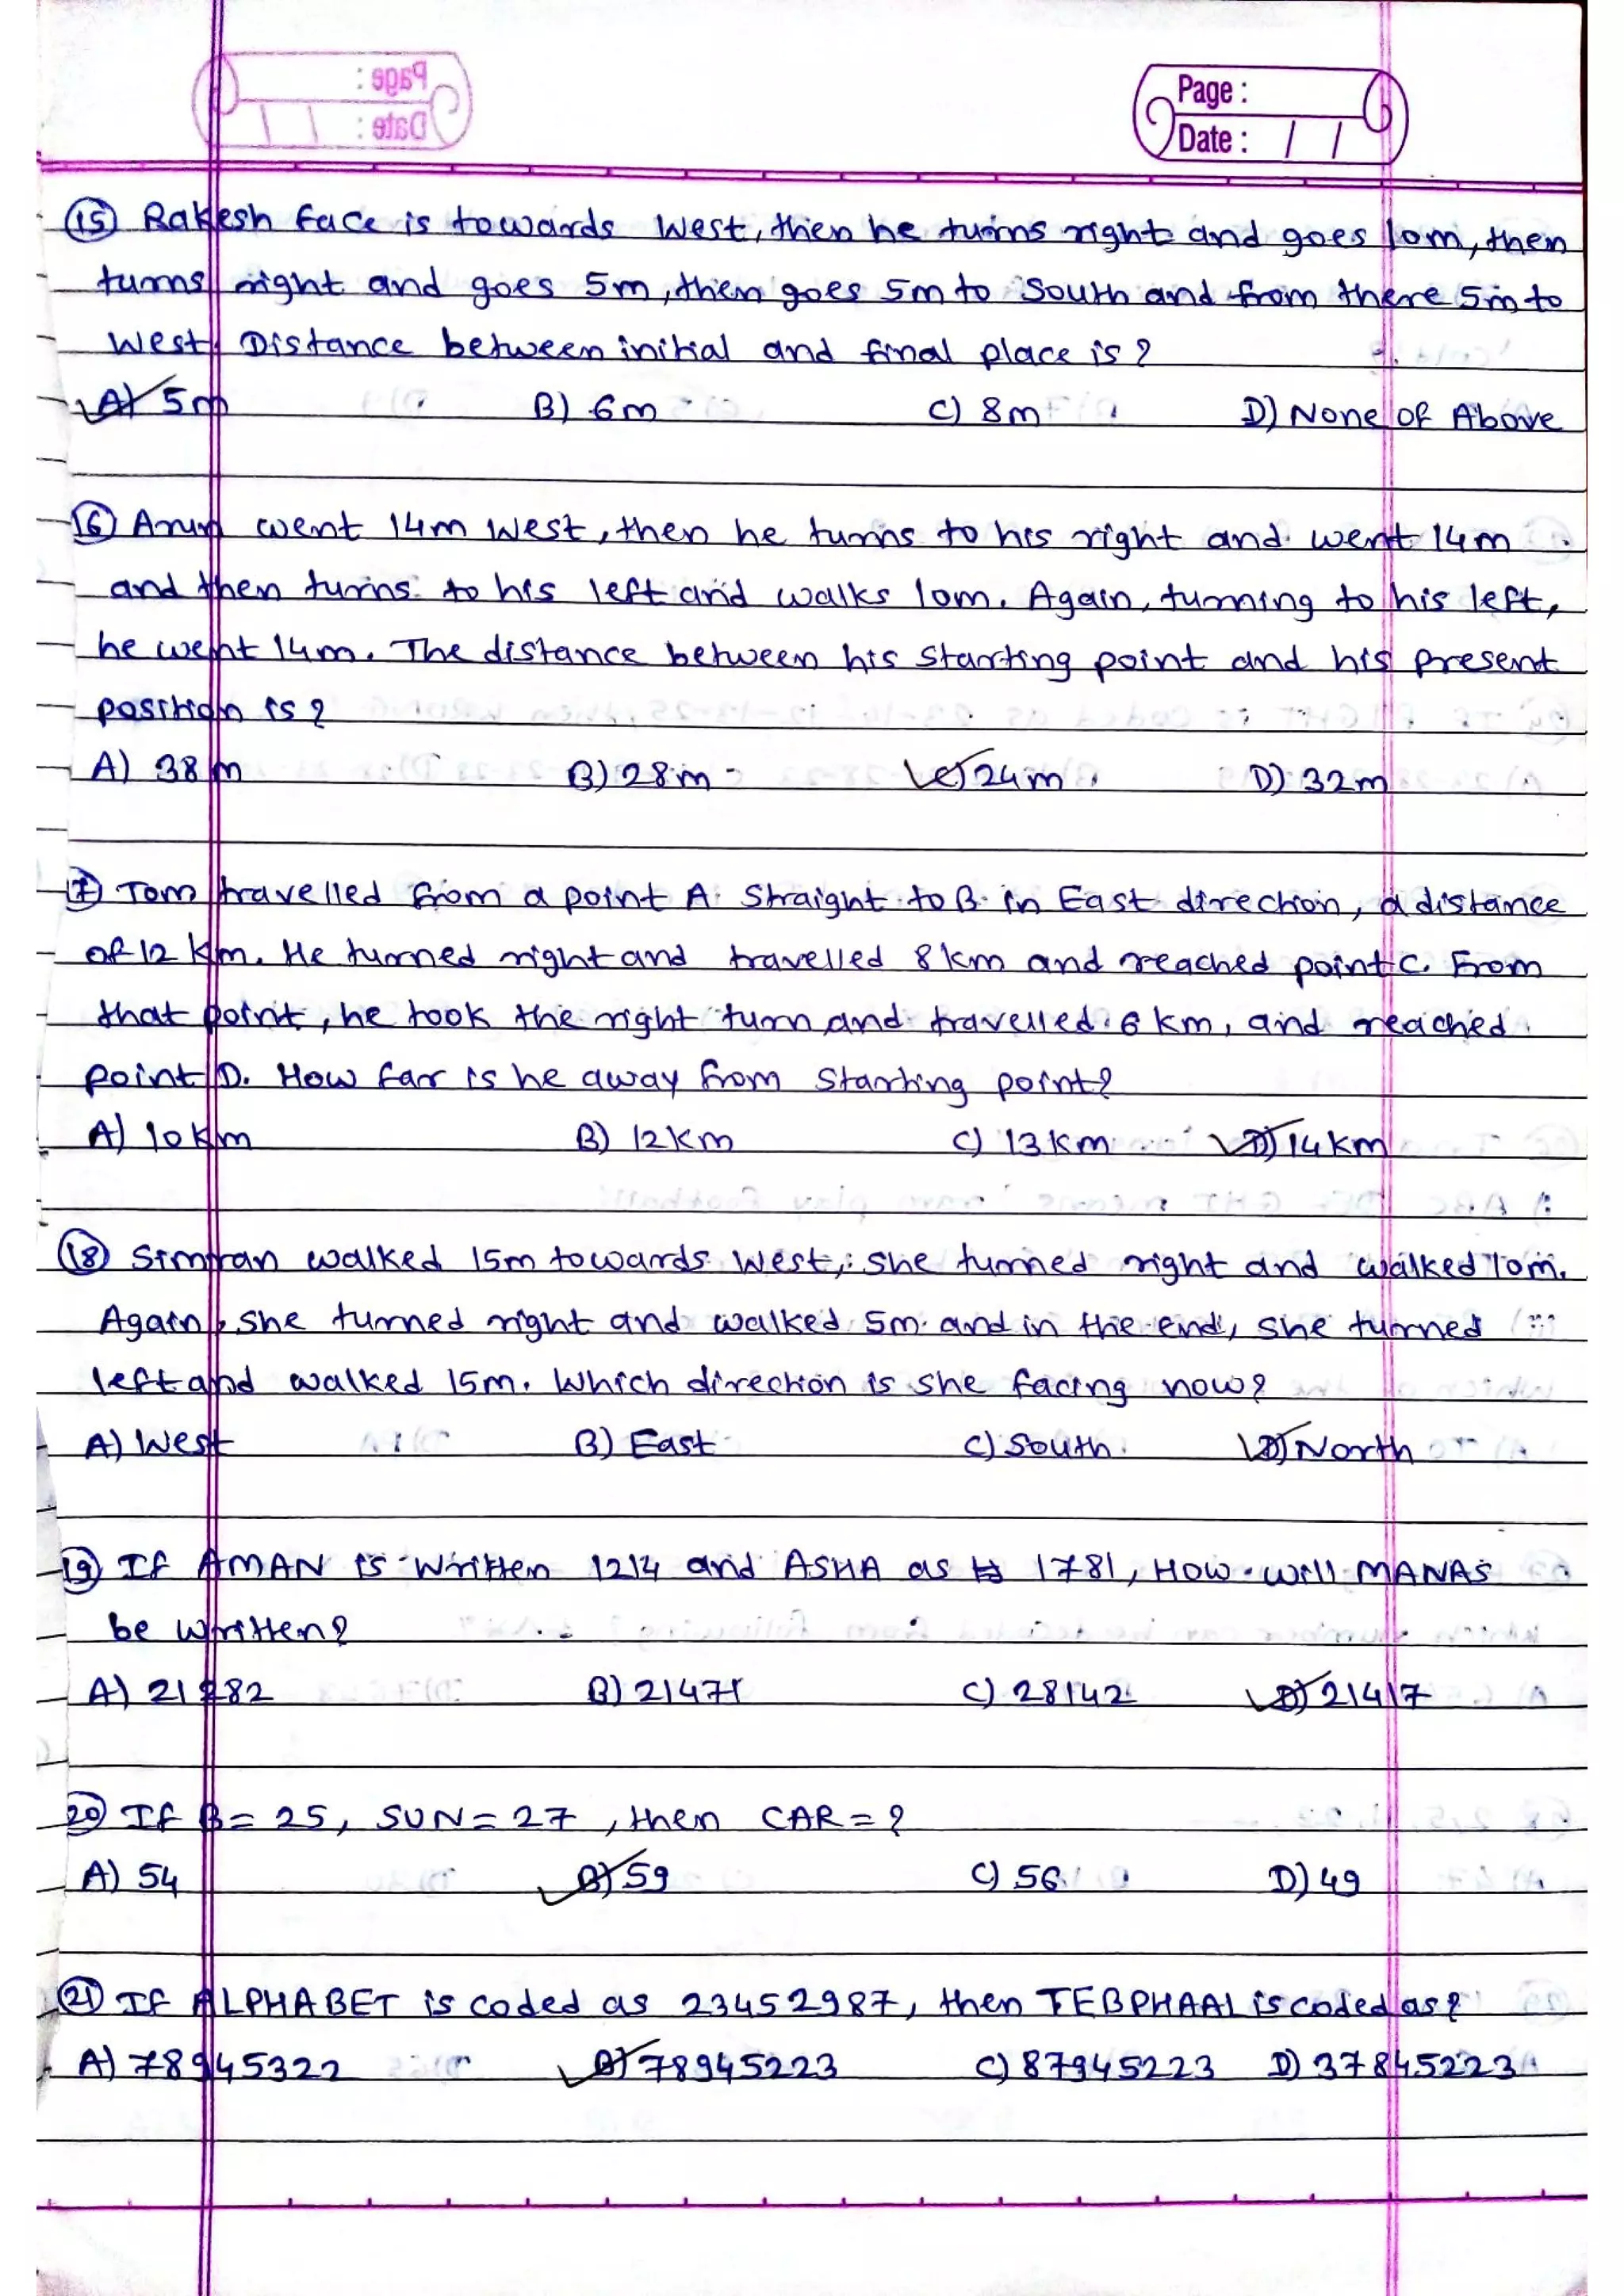 Page :
Date : / /
15) Rakesh face is towards West, then he turns right and goes 10m, then
turns right and goes 5m, then goes 5m to South and from there 5m to
West. Distance between initial and final place is ?
A) 5m B) 6m C) 8m D) None of Above
16) Arun went 14m West, then he turns to his right and went 14m
and then turns to his left and walks 10m. Again, turning to his left,
he went 14m. The distance between his starting point and his present
position is ?
A) 38m B) 28m C) 24m D) 32m
17) Tom travelled from a point A straight to B in East direction, a distance
of 12 km. He turned right and travelled 8km and reached point C. From
that point, he took the right turn and travelled 6 km, and reached
point D. How far is he away from starting point?
A) 10km B) 12km C) 13km D) 14km
18) Simran walked 15m towards West, she turned right and walked 10m.
Again, she turned right and walked 5m and in the end, she turned
left and walked 15m. Which direction is she facing now?
A) West B) East C) South D) North
19) If AMAN is written 1214 and ASHA as 1781, How will MANAS
be written?
A) 21282 B) 21471 C) 28142 D) 21417
20) If B = 25, SUN = 27, then CAR = ?
A) 54 B) 59 C) 56 D) 49
21) If ALPHABET is coded as 23452987, then TEBPHAAL is coded as?
A) 78945322 B) 78945223 C) 87945223 D) 37845223